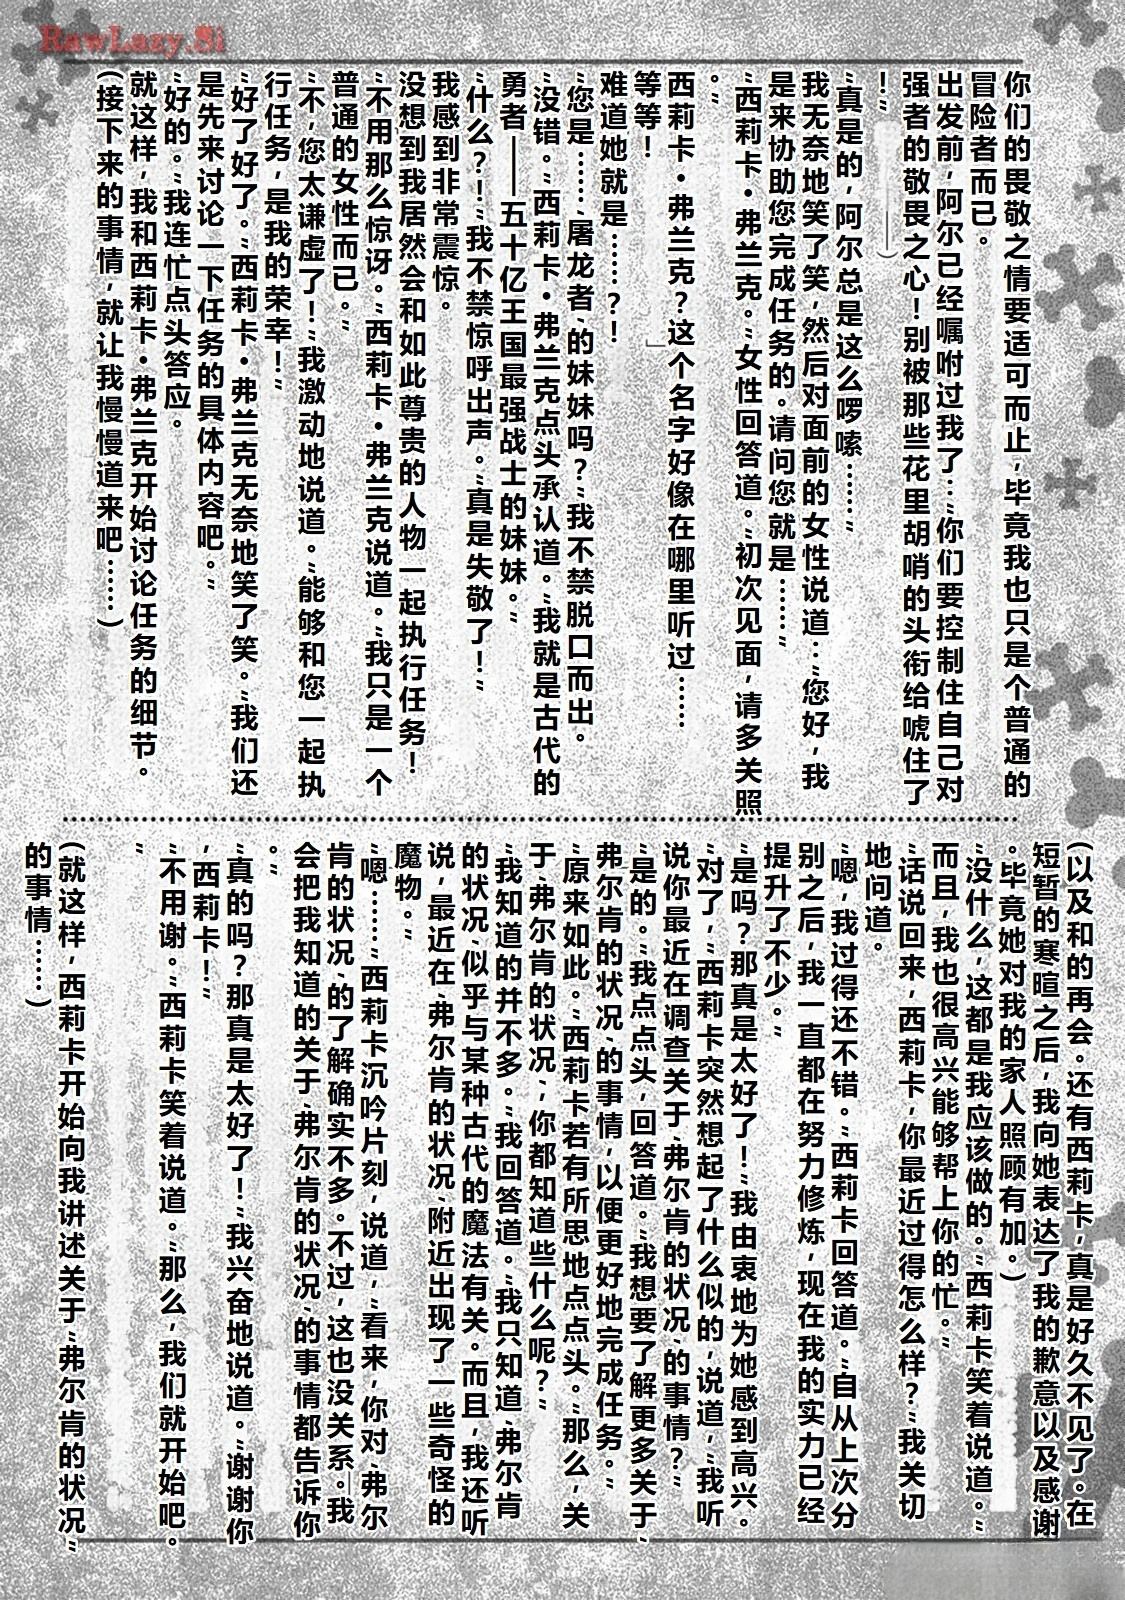 RawLazy.Si
你们的畏敬之情要适可而止，毕竟我也只是个普通的
冒险者而已。
出发前，阿尔已经嘱咐过我了：“你们要控制住自己对
强者的敬畏之心！别被那些花里胡哨的头衔给唬住了
！”
“真是的，阿尔总是这么啰嗦……”
我无奈地笑了笑，然后对面前的女性说道：“您好，我
是来协助您完成任务的。请问您就是……”
“西莉卡·弗兰克。”女性回答道。“初次见面，请多关照
。”
西莉卡·弗兰克？这个名字好像在哪里听过……
等等！
难道她就是……？！
“您是……‘屠龙者’的妹妹吗？”我不禁脱口而出。
“没错。”西莉卡·弗兰克点头承认道。“我就是古代的
勇者——五十亿王国最强战士的妹妹。”
“什么？！”我不禁惊呼出声。“真是失敬了！”
我感到非常震惊。
没想到我居然会和如此尊贵的人物一起执行任务！
“不用那么惊讶。”西莉卡·弗兰克说道。“我只是一个
普通的女性而已。”
“不，您太谦虚了！”我激动地说道。“能够和您一起执
行任务，是我的荣幸！”
“好了好了。”西莉卡·弗兰克无奈地笑了笑。“我们还
是先来讨论一下任务的具体内容吧。”
“好的。”我连忙点头答应。
就这样，我和西莉卡·弗兰克开始讨论任务的细节。
(接下来的事情，就让我慢慢道来吧……)
(以及和的再会。还有西莉卡，真是好久不见了。在
短暂的寒暄之后，我向她表达了我的歉意以及感谢
。毕竟她对我的家人照顾有加。)
“没什么，这都是我应该做的。”西莉卡笑着说道。”
而且，我也很高兴能够帮上你的忙。”
“话说回来，西莉卡，你最近过得怎么样？”我关切
地问道。
“嗯，我过得还不错。”西莉卡回答道。“自从上次分
别之后，我一直都在努力修炼，现在我的实力已经
提升了不少。”
“是吗？那真是太好了！”我由衷地为她感到高兴。
“对了，”西莉卡突然想起了什么似的，说道，“我听
说你最近在调查关于‘弗尔肯的状况’的事情？”
“是的。”我点点头，回答道。“我想要了解更多关于‘
弗尔肯的状况’的事情，以便更好地完成任务。”
“原来如此。”西莉卡若有所思地点点头。“那么，关
于‘弗尔肯的状况’，你都知道些什么呢？”
“我知道的并不多。”我回答道。“我只知道‘弗尔肯
的状况’似乎与某种古代的魔法有关。而且，我还听
说，最近在‘弗尔肯的状况’附近出现了一些奇怪的
魔物。”
“嗯……”西莉卡沉吟片刻，说道，“看来，你对‘弗尔
肯的状况’的了解确实不多。不过，这也没关系。我
会把我知道的关于‘弗尔肯的状况’的事情都告诉你
。”
“真的吗？那真是太好了！”我兴奋地说道。“谢谢你
，西莉卡！”
“不用谢。”西莉卡笑着说道。“那么，我们就开始吧。
”
(就这样，西莉卡开始向我讲述关于“弗尔肯的状况”
的事情……)